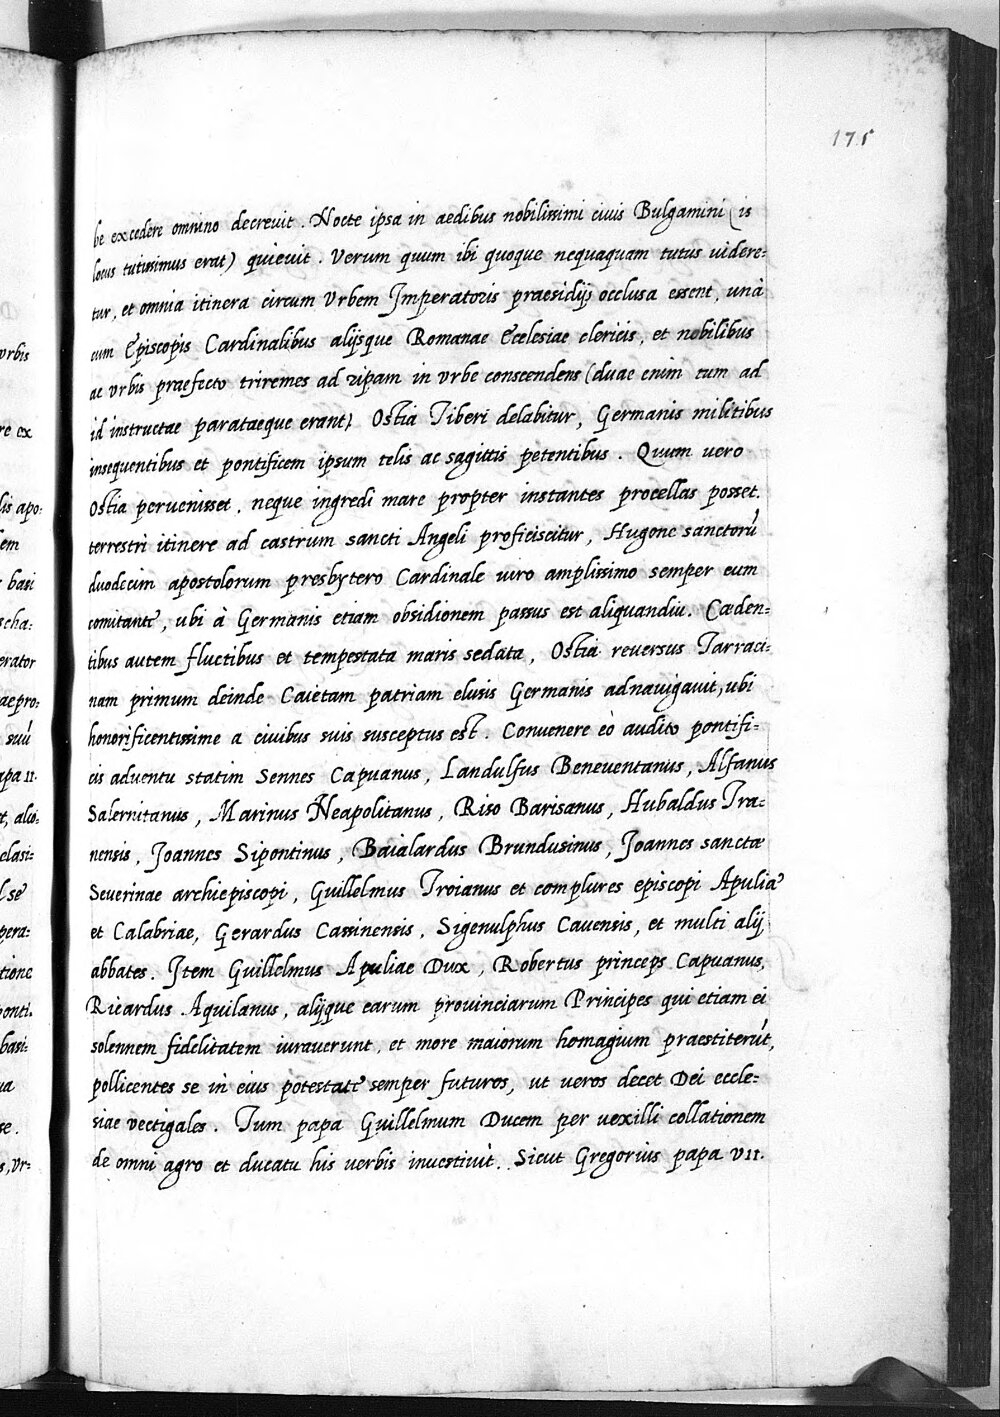 175
be excedere omnino decrevit. Nocte ipsa in aedibus nobilissimi civis Bulgamini (is
locus tutissimus erat) quievit. Verum quum ibi quoque nequaquam tutus videre=
tur, et omnia itinera circum Vrbem Imperatoris praesidijs occlusa essent, unà
cum Episcopis Cardinalibus alijsque Romanae Ecclesiae clericis, et nobilibus
ac vrbis praefecto triremes ad ripam in vrbe conscendens (duae enim cum ad
id instructae parataeque erant) Ostia Tiberi delabitur, Germanis militibus
insequentibus et pontificem ipsum telis ac sagittis petentibus. Quum vero
Ostia pervenisset, neque ingredi mare propter instantes procellas posset.
terrestri itinere ad castrum sancti Angeli proficiscitur, Hugone sanctorú
duodecim apostolorum presbytero Cardinale viro amplissimo semper eum
comitante, ubi à Germanis etiam obsidionem passus est aliquandiu. Cæden=
tibus autem fluctibus et tempestata maris sedata, Ostia reversus Tarraci=
nam primum deinde Caietam patriam elusis Germanis adnavigavit, ubi
honorificentissime a civibus suis susceptus est. Convenere eò audito pontifi=
cis adventu statim Sennes Capuanus, Landulfus Beneventanus, Alfanus
Salernitanus, Marinus Neapolitanus, Riso Barisanus, Hubaldus Tra=
nensis, Joannes Sipontinus, Baialardus Brundusinus, Joannes sanctæ
Severinae archiepiscopi, Guillelmus Troianus et complures episcopi Apuliæ
et Calabriae, Gerardus Cassinensis, Sigenulphus Cavensis, et multi alij
abbates. Item Guillelmus Apuliae Dux, Robertus princeps Capuanus,
Ricardus Aquilanus, alijque earum provinciarum Principes qui etiam ei
solennem fidelitatem iuraverunt, et more maiorum homagium praestiterút,
pollicentes se in eius potestate semper futuros, ut veros decet Dei eccle=
siae vectigales. Tum papa Guillelmum Ducem per vexilli collationem
de omni agro et ducatu his verbis investivit. Sicut Gregorius papa VII.